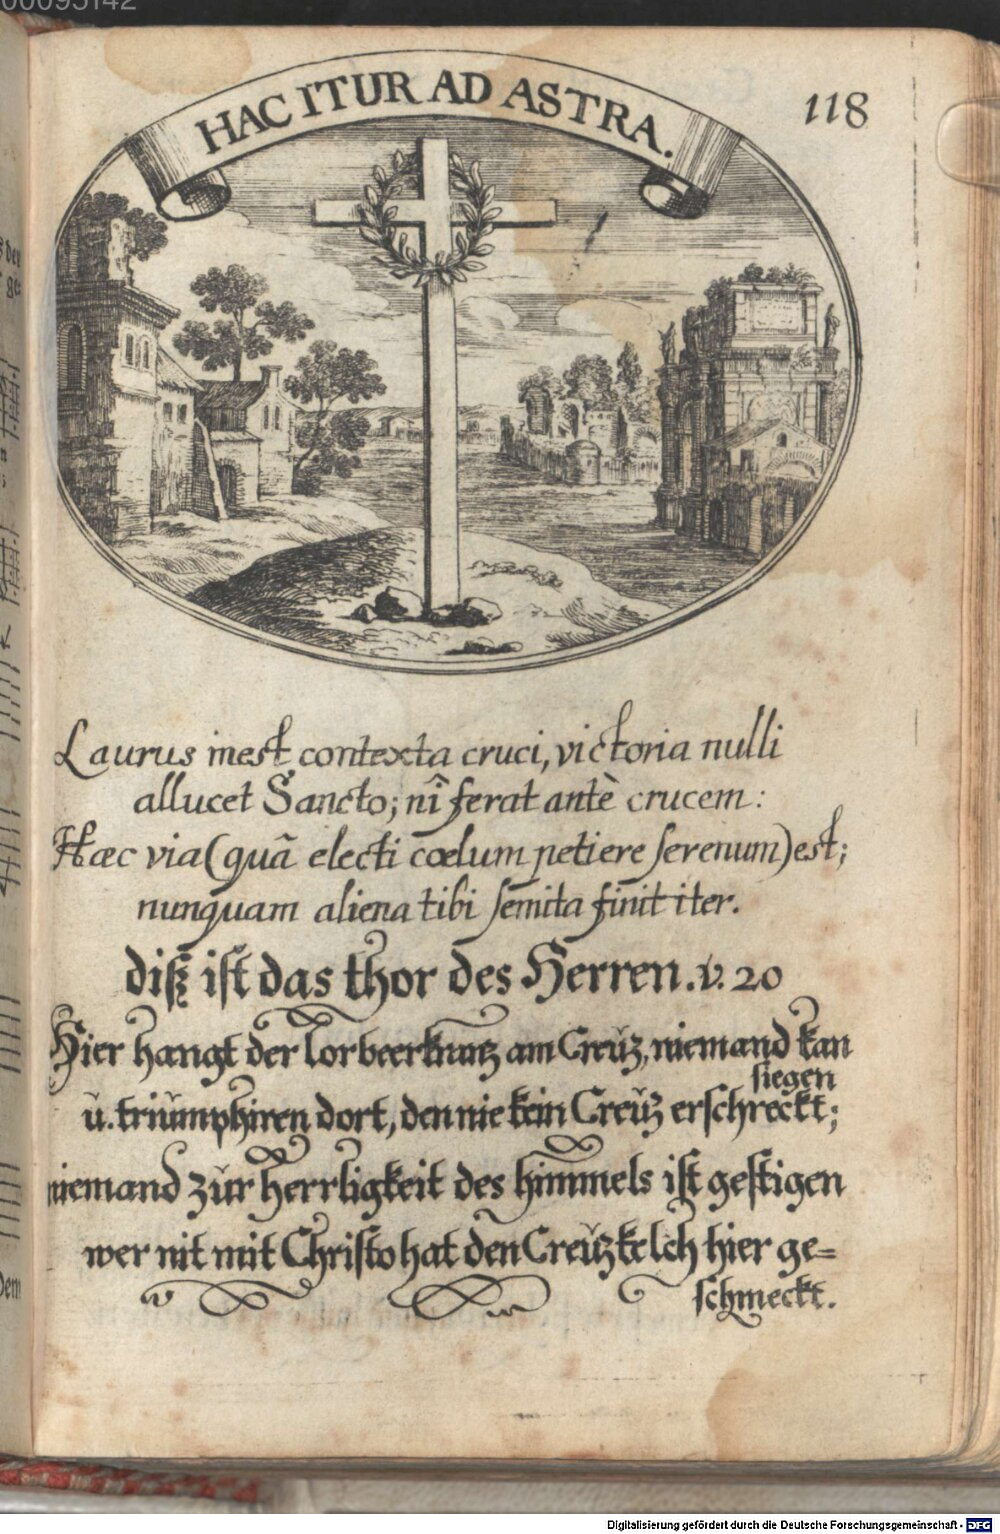 00095142
HAC ITUR AD ASTRA.
118
Laurus inest contexta cruci, victoria nulli
allucet Sancto; nî ferat antè crucem:
Hæc via (quâ electi cœlum petiere serenum) est;
nunquam aliena tibi semita finit iter.
diß ist das thor des Herren. v. 20
Hier hangt der lorbeerkrantz am Creütz, niemand kan
siegen
ü. triümphiren dort, den nie kein Creütz erschreckt;
niemand zür herrligkeit des himmels ist gestigen
wer nit mit Christo hat den Creützkelch hier ge=
schmeckt.
Digitalisierung gefördert durch die Deutsche Forschungsgemeinschaft - DFG